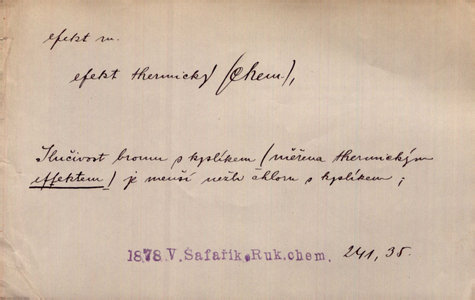 efekt m.
efekt thermický (Chem.),
Slučivost bromu s kyslíkem (měřena thermickým
effektem) je menší nežli chloru s kyslíkem;
1878.V.Šafařík.Ruk.chem. 241, 35.